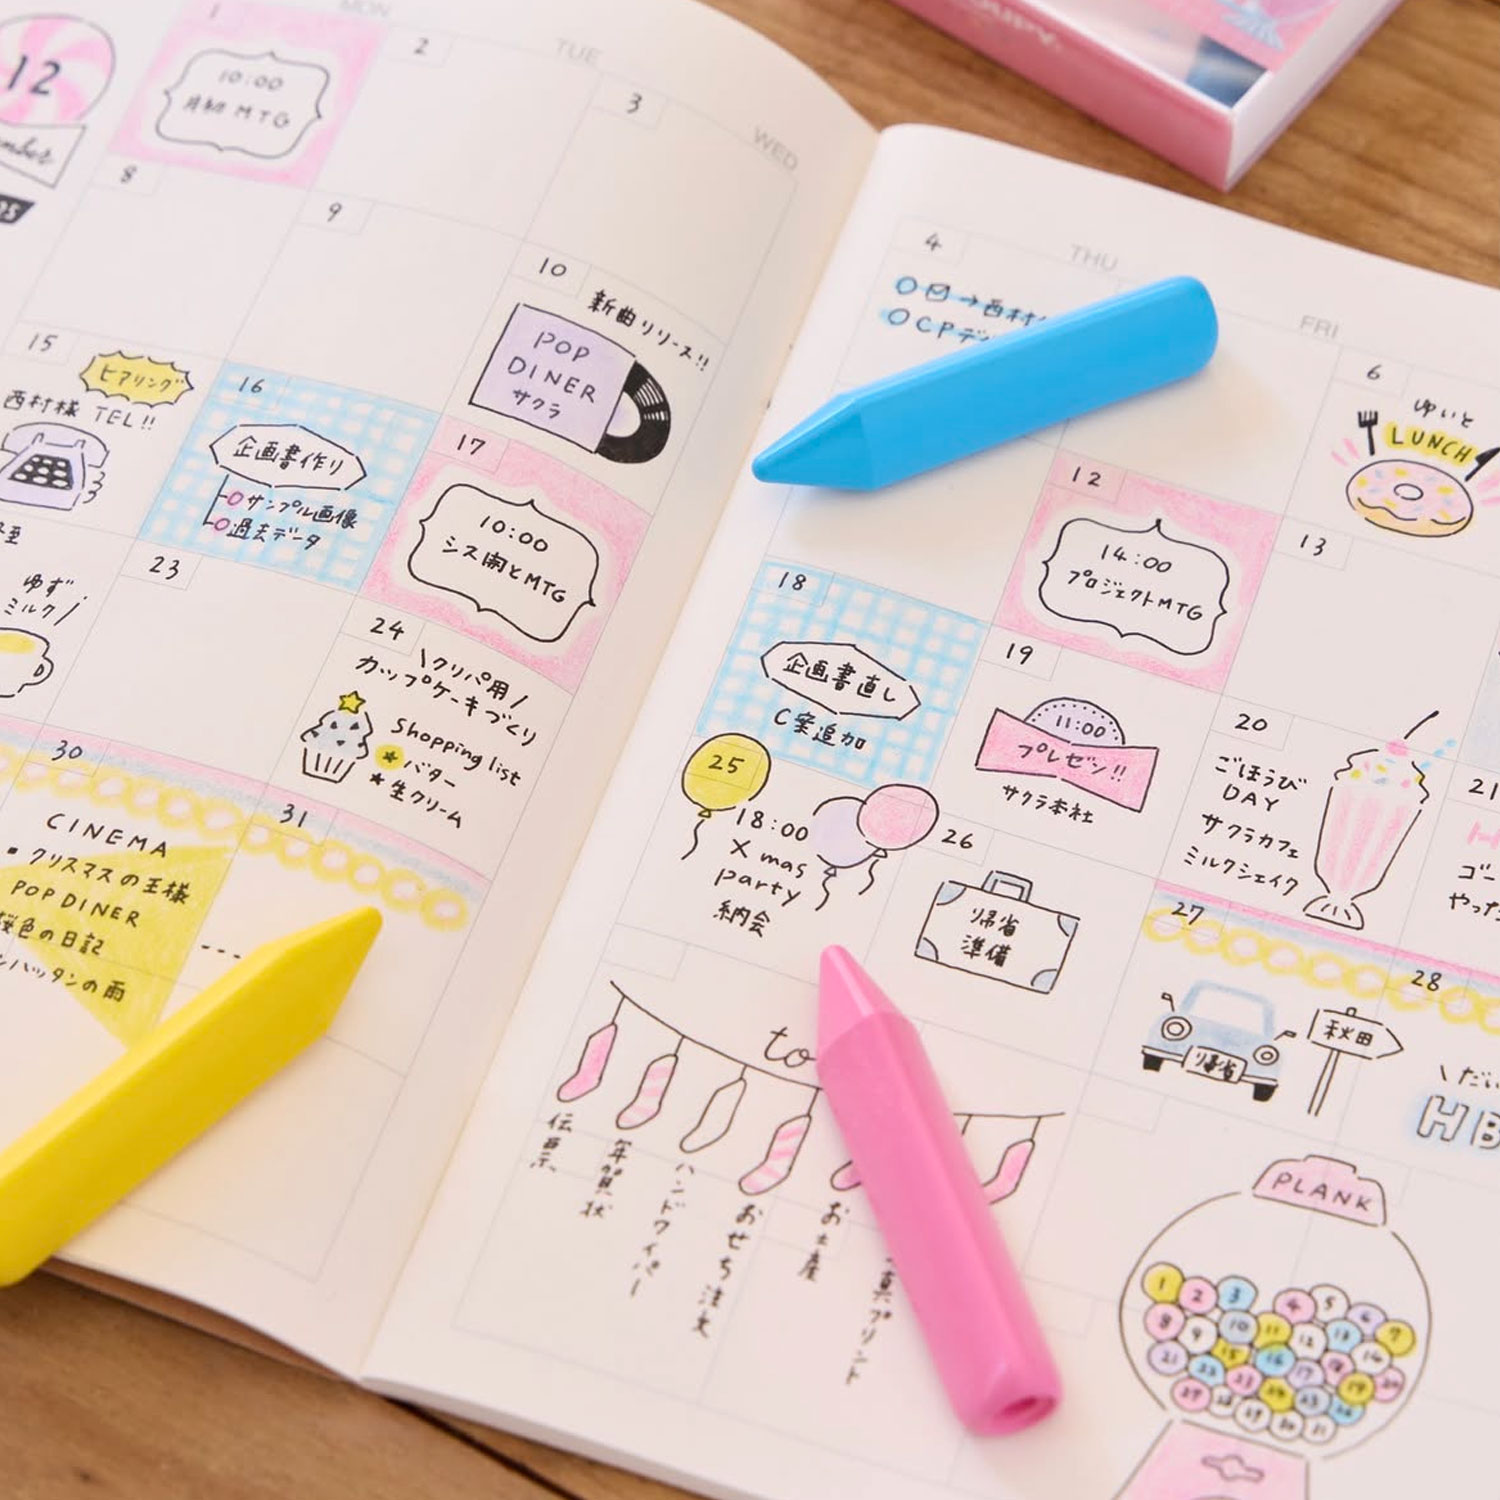 MON
TUE
WED
THU
FRI
12
1
10:00
月初MTG
2
3
8
9
10
新曲リリース!!
POP
DINER
サクラ
15
ヒアリング
西村様 TEL!!
16
企画書作り
サンプル画像
過去データ
17
10:00
シス開とMTG
ゆず
ミルク
23
24
クリパ用
カップケーキづくり
Shopping list
バター
生クリーム
30
CINEMA
クリスマスの王様
POP DINER
桜色の日記
31
4
→西村
CPデ
6
ゆいと
LUNCH
12
14:00
プロジェクトMTG
13
18
企画書直し
C案追加
19
11:00
プレゼン!!
サクラ本社
20
ごほうび
DAY
サクラカフェ
ミルクシェイク
21
ゴー
やった
25
18:00
Xmas
party
納会
26
帰省
準備
27
帰省
秋田
28
だい
HB
to
年賀状
ハンドワイパー
おせち注文
お土産
真プリント
PLANK
1
2
3
4
5
6
7
8
9
10
11
12
13
14
21
15
16
17
18
19